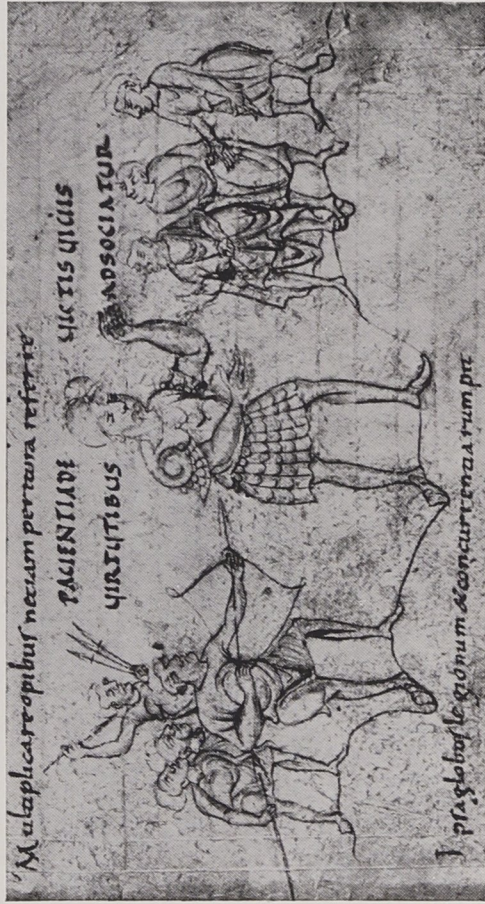 Multiplicasse opibus nec iam peritura referre
PACIENTIA DE VICTIS VICIIS
VIRTUTIBUS ADSOCIATUR
Ipsa globos legionum & concurrentia rumpit